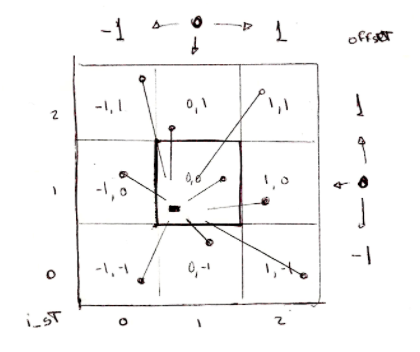 -1 0 1
offset
2 -1,1 0,1 1,1 1
1 -1,0 0,0 1,0 0
0 -1,-1 0,-1 1,-1 -1
i_st 0 1 2